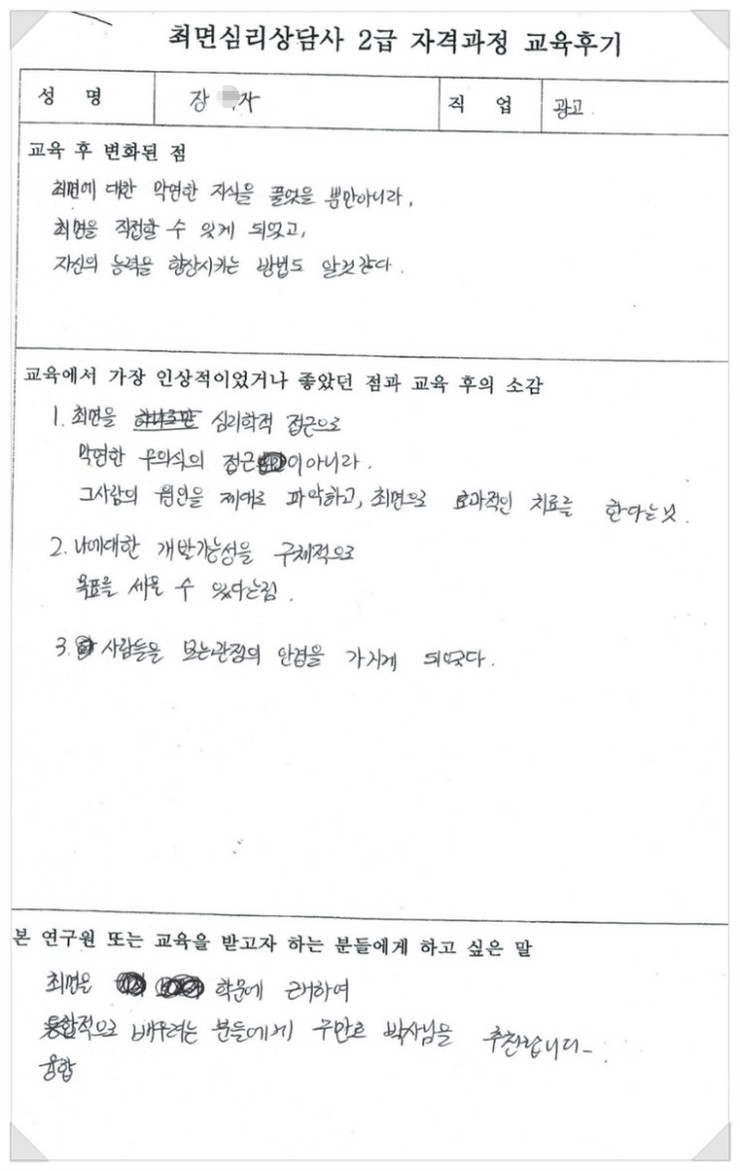 최면심리상담사 2급 자격과정 교육후기
성 명 장 자 직 업 광고
교육 후 변화된 점
최면에 대한 막연한 지식을 풀었을 뿐만아니라,
최면을 직접할 수 있게 되었고,
자신의 능력을 향상시키는 방법도 알것같다.
교육에서 가장 인상적이었거나 좋았던 점과 교육 후의 소감
1. 최면을 심리학적 접근으로
막연한 무의식의 접근이아니라.
그사람의 원인을 제대로 파악하고, 최면으로 효과적인 치료를 한다는것.
2. 나에대한 개발가능성을 구체적으로
목표를 세울 수 있다는점.
3. 사람들을 보는관점의 안경을 가지게 되었다.
본 연구원 또는 교육을 받고자 하는 분들에게 하고 싶은 말
최면을 학문에 근거하여
통합적으로 배우려는 분들에게 박사님을 추천합니다
융합